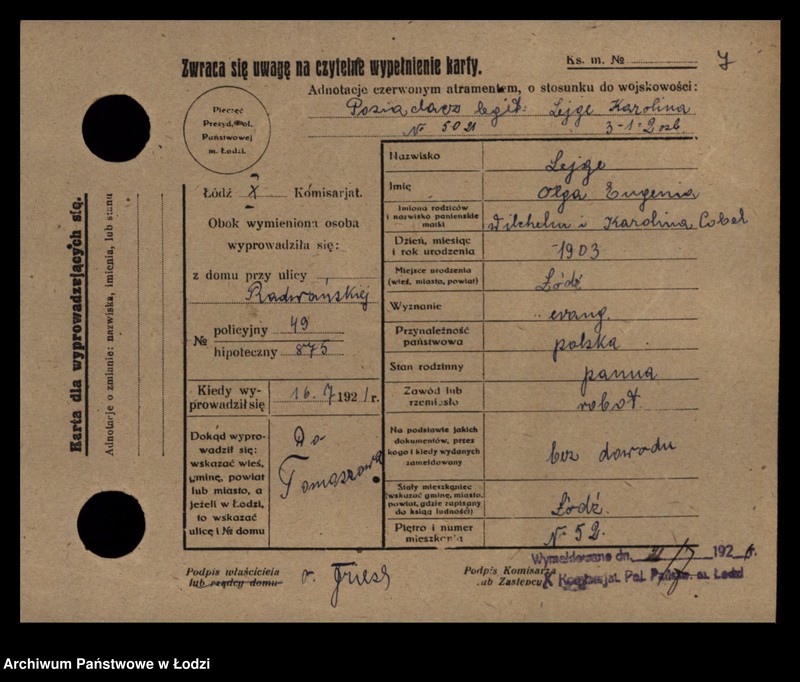 Zwraca się uwagę na czytelne wypełnienie karty.
Ks. m. №
Adnotacje czerwonym atramentem, o stosunku do wojskowości:
Posiadacz legit. Lejge Karolina
№ 5021 3-1-2 osb.
Pieczęć
Prezyd. Pol.
Państwowej
m. Łodzi.
Łódź X Komisarjat.
Obok wymieniona osoba
wyprowadziła się:
z domu przy ulicy
Radwańskiej
№ policyjny 49
hipoteczny 875
Kiedy wyprowadził się 16.7 1921 r.
Dokąd wyprowadził się:
wskazać wieś,
gminę, powiat
lub miasto, a
jeżeli w Łodzi,
to wskazać
ulicę i № domu
Do
Tomaszowa
Nazwisko Lejge
Imię Olga Eugenia
Imiona rodziców
i nazwisko panieńskie
matki
Wilhelm i Karolina
Dzień, miesiąc
i rok urodzenia
1903
Miejsce urodzenia
(wieś, miasto, powiat)
Łódź
Wyznanie evang.
Przynależność
państwowa
polska
Stan rodzinny panna
Zawód lub
rzemiosło
robot.
Na podstawie jakich
dokumentów, przez
kogo i kiedy wydanych
zameldowany
bez dowodu
Stały mieszkaniec
(wskazać gminę, miasto,
powiat, gdzie zapisany
do ksiąg ludności)
Łódź
Piętro i numer
mieszkania
№ 52.
Podpis właściciela
lub rządcy domu
Podpis Komisarza
lub Zastępcy
Wymeldowano dn. 192
X Komisarjat Pol. Państw. m. Łodzi
Karta dla wyprowadzających się.
Adnotacje o zmianie: nazwiska, imienia, lub stanu
Archiwum Państwowe w Łodzi